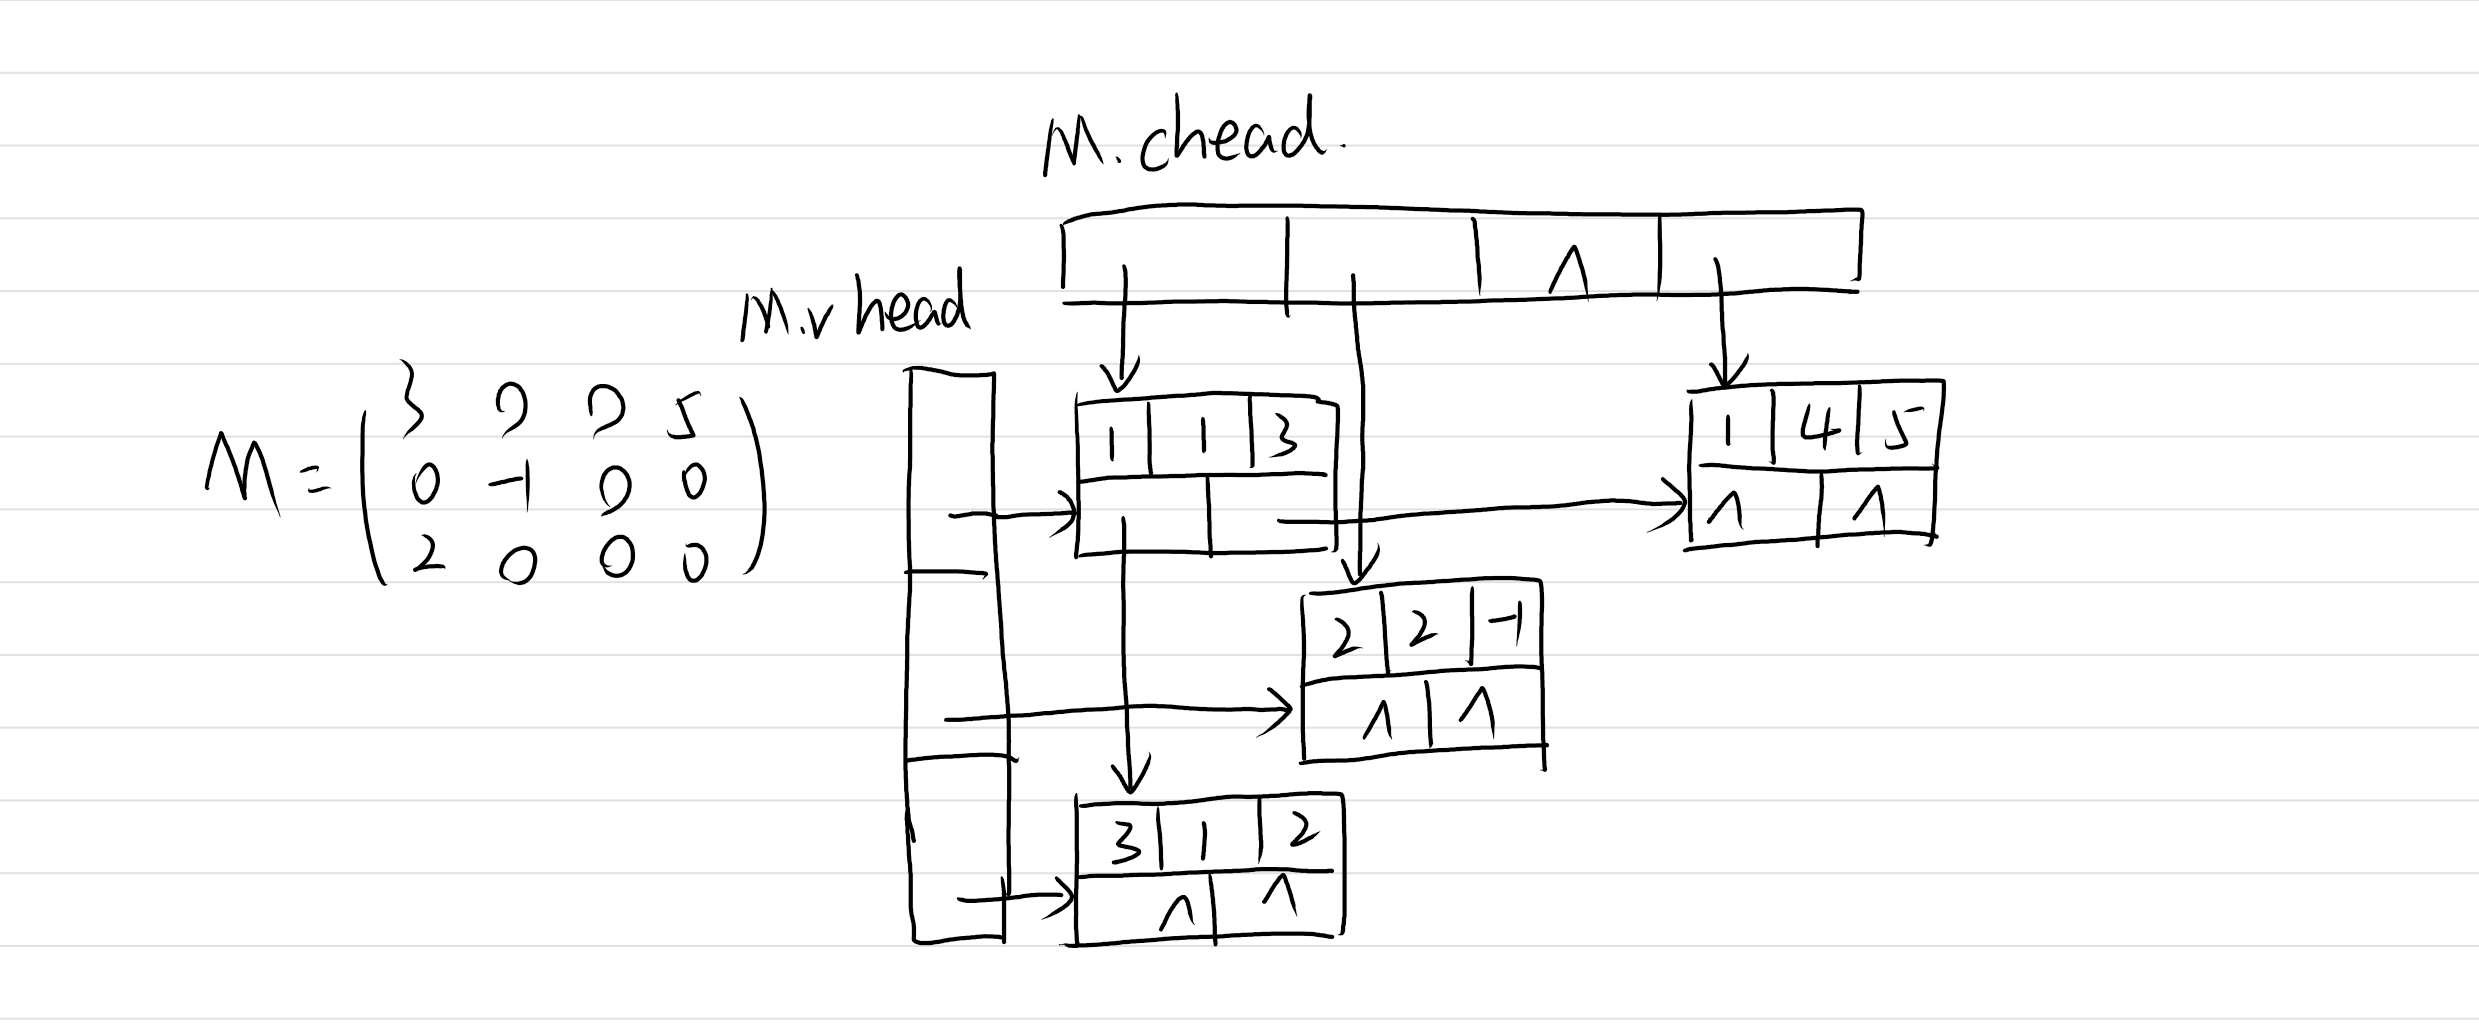 M.chead.
∧
M.rhead
M = ( 3 0 0 5
0 -1 0 0
2 0 0 0 )
1 1 3
1 4 5
∧ ∧
2 2 -1
∧ ∧
3 1 2
∧ ∧